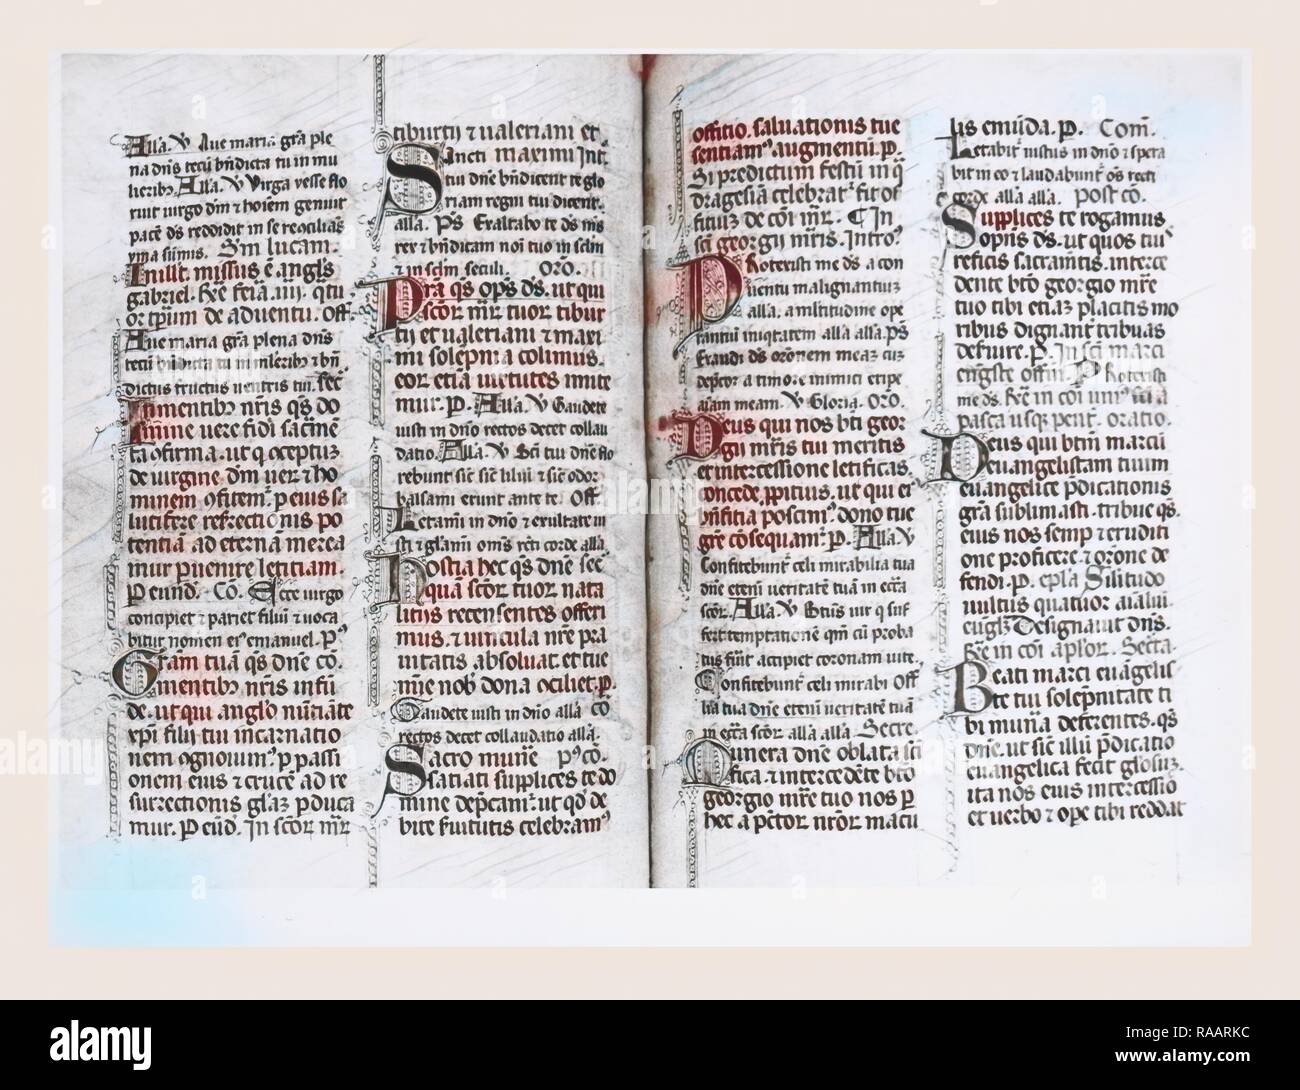 Alla. V Aue maria gr̄a ple
na dn̄s tecū bn̄dicta tu in mu
lierib9. Alla. V Virga yesse flo
ruit uirgo dm̄ ⁊ hoīem genuit
pacē ds̄ reddidit in se recōcilias
yma sūmis. Sm̄ lucam.
In illo t. missus ē angl̄s
gabriel. Re᷑ feria .iiij. q̄tu
or tp̄um de aduentu. Off.
Aue maria gr̄a plena dn̄s
tecū bn̄dicta tu in mlierib9 ⁊ bn̄
dictus fructus uentris tui. Sec̄
In mentib9 nr̄is q̄s do
mine uere fidi sac̄mē
ta ɔfirma. ut q̄ ɔceptuꝫ
de uirgine dm̄ uer ⁊ ho
minem ɔfitemr̄ p eius sa
lutifere resrectionis po
tentiam ad eternam merea
mur puenire leticiam.
P eund̄. Cō. Ecce uirgo
concipiet ⁊ pariet filiū ⁊ uoca
bitur nomen ei9 emanuel. P9
Gr̄am tuā q̄s dn̄e cō.
mentib9 nr̄is infū
de. ut qui anglo nūciante
xp̄i filij tui incarnatio
nem ɔgnouim9 p passi
onem eius ⁊ crucē ad re
surrectionis gl̄aꝫ pduca
mur. P eund̄. In sc̄oꝝ mr̄ꝝ
tiburtij ⁊ ualeriani et
Sancti maximi Intr̄.
tui dn̄e bn̄dicent te glo
riam regni tui dicent.
alla. P̄s Exaltabo te ds̄ ms̄
rex ⁊ bn̄dicam noī tuo in sclm̄
⁊ in sclm̄ seculi. Oro.
Pra q̄s op̄s ds̄. ut qui
sc̄oꝝ mr̄ tuoꝝ tibur
tij et ualeriani ⁊ maxi
mi solepnia colimus.
eoꝝ etiā uirtutes imite
mur. P. Alla. V Gaudete
iusti in dn̄o rectos decet collau
datio. Alla. V Sc̄i tui dn̄e flo
rebunt sic̄ sic̄ liliū ⁊ sic̄ odor
balsami erunt ante te Off
Letamī in dn̄o ⁊ exultate iu
sti ⁊ gl̄amī oms̄ rc̄ti corde alla
Hostia hec q̄s dn̄e sec̄
quā sc̄oꝝ tuoꝝ nata
litijs recensentes offeri
mus. ⁊ uincula nr̄e pra
uitatis absoluat. et tue
mīe nob̄ dona ɔciliet. p.
Gaudete iusti in dn̄o alla Cō
rectos decet collaudatio alla.
Sacro mune P9cō.
satiati supplices te do
mine dep̄camr̄. ut qd̄ de
bite s̄uitutis celebram9
officio. saluationis tue
sentiam9 augmentū. p.
Si predictum festū in q̄
dragesiā celebrat̄ fit of
fitiuꝫ de coī mr̄. ¶ In
sc̄i georgij mr̄is. Intro9
Protexisti me ds̄ a con
uentu malignantiuꝫ
alla. a mltitudine ope
rantiū iniq̄tatem alla alla. P̄s
Exaudi ds̄ or̄onem meaꝫ cuꝫ
dep̄cor a timore inimici eripe
aīam meam. V Gloria. Oro.
Deus qui nos bt̄i geor
gij mr̄is tui meritis
et intercessione letificas.
concede ppitius. ut qui ei9
bn̄fitia poscim9 dono tue
gr̄e cōsequamr̄. P. Alla. V
Confitebunt̄ celi mirabilia tua
dn̄e etenī ueritatē tuā in ecc̄a
sc̄oꝝ. Alla. V Bt̄us uir q̄ suf
fert temptationē qm̄ cū proba
tus fūit accipiet coronam uite.
Confitebunt̄ celi mirabi Off
lia tua dn̄e etenī ueritatē tuā
in ecc̄a sc̄oꝝ alla alla. Secre.
Munera dn̄e oblata sc̄i
fica. ⁊ intercedēte bt̄o
georgio mr̄e tuo nos p
hec a pc̄toꝝ nr̄oꝝ macu
lis emūda. P. Com̄.
Letabit̄ iustus in dn̄o ⁊ spera
bit in eo ⁊ laudabunt̄ os̄ recti
corde alla alla. Post cō.
Supplices te rogamus
op̄s ds̄. ut quos tuis
reficis sacram̄tis. interce
dente bt̄o georgio mr̄e
tuo tibi etiaꝫ placitis mo
ribus dignant̄ tribuas
des̄uire. p. In sc̄i marci
eng̅ste offm̄. P Rotexisti
me ds̄. Re᷑ in coī uni9 m̄ a
pasca usq̄ pent̄. Oratio.
Deus qui bt̄m marcū
euangelistam tuum
euangelice p̄dicationis
gr̄a sublimasti. tribue q̄s.
eius nos semp ⁊ eruditi
one proficere. ⁊ or̄one de
fendi. P. epl̄a Silitudo
uultus quatuor aīaliū.
eug̅lꝫ Designauit dn̄s.
Re᷑ in coī apl̄oꝝ. Secr̄a.
Beati marci euangelis
te tui solepnitate ti
bi munīa deferentes. q̄s
dn̄e. ut sic̄ illū p̄dicatio
euangelica fecit gl̄osuꝫ.
ita nos eius intercessio
et uerbo ⁊ ope tibi reddat
alamy
Image ID: RAARKC
www.alamy.com